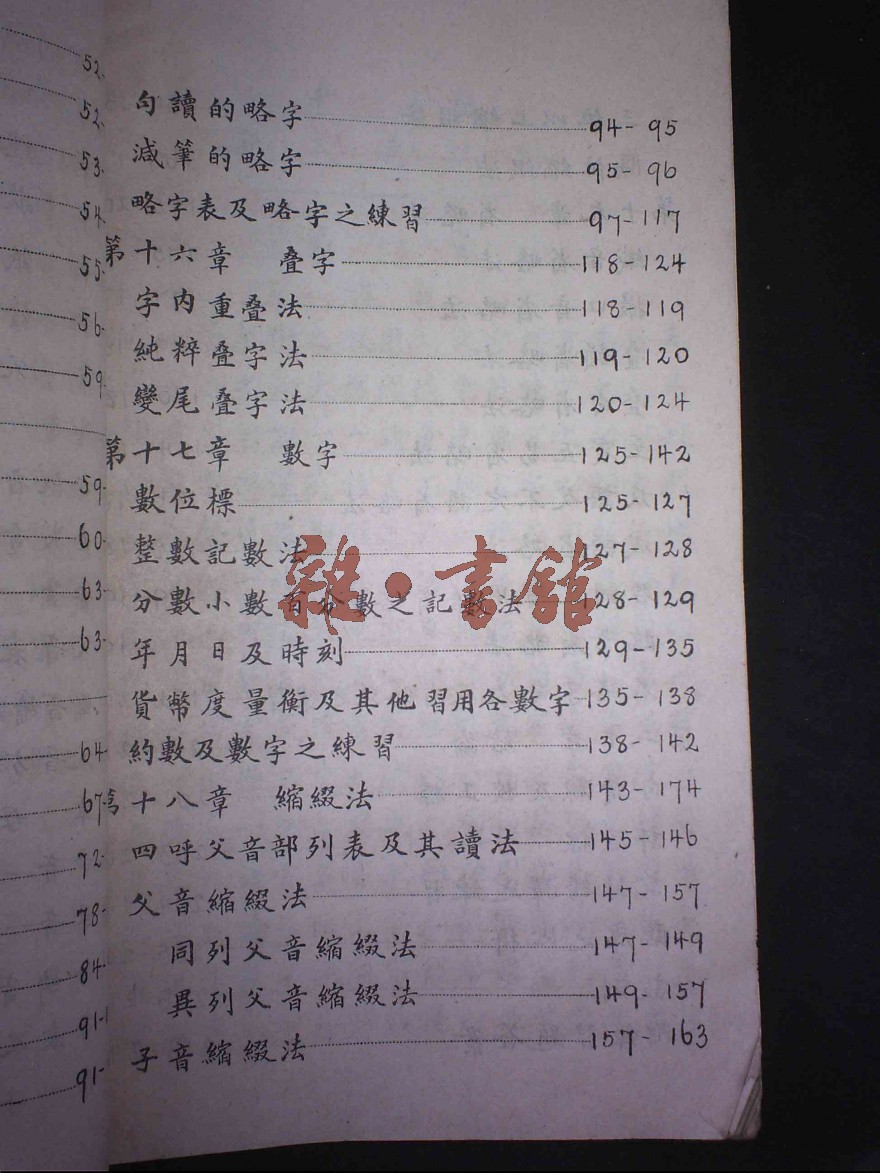 句讀的略字 94-95
減筆的略字 95-96
略字表及略字之練習 97-117
第十六章 疊字 118-124
字內重疊法 118-119
純粹疊字法 119-120
變尾疊字法 120-124
第十七章 數字 125-142
數位標 125-127
整數記數法 127-128
分數小數百分數之記數法 128-129
年月日及時刻 129-135
貨幣度量衡及其他習用各數字 135-138
約數及數字之練習 138-142
十八章 縮綴法 143-174
四呼父音部列表及其讀法 145-146
父音縮綴法 147-157
同列父音縮綴法 147-149
異列父音縮綴法 149-157
子音縮綴法 157-163
52
52
53
54
55
56
59
59
60
63
63
64
67
72
78
84
91
91
雜·書館